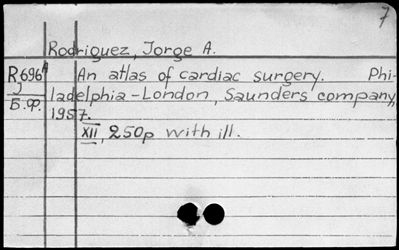 7
Rodriguez, Jorge A.
R696A An atlas of cardiac surgery. Phi-
J ladelphia-London, Saunders company,
Б.Ф. 1957.
XII, 250p with ill.